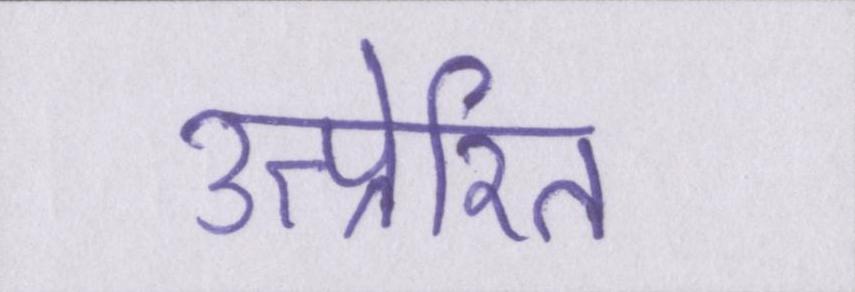 उत्प्रेरित